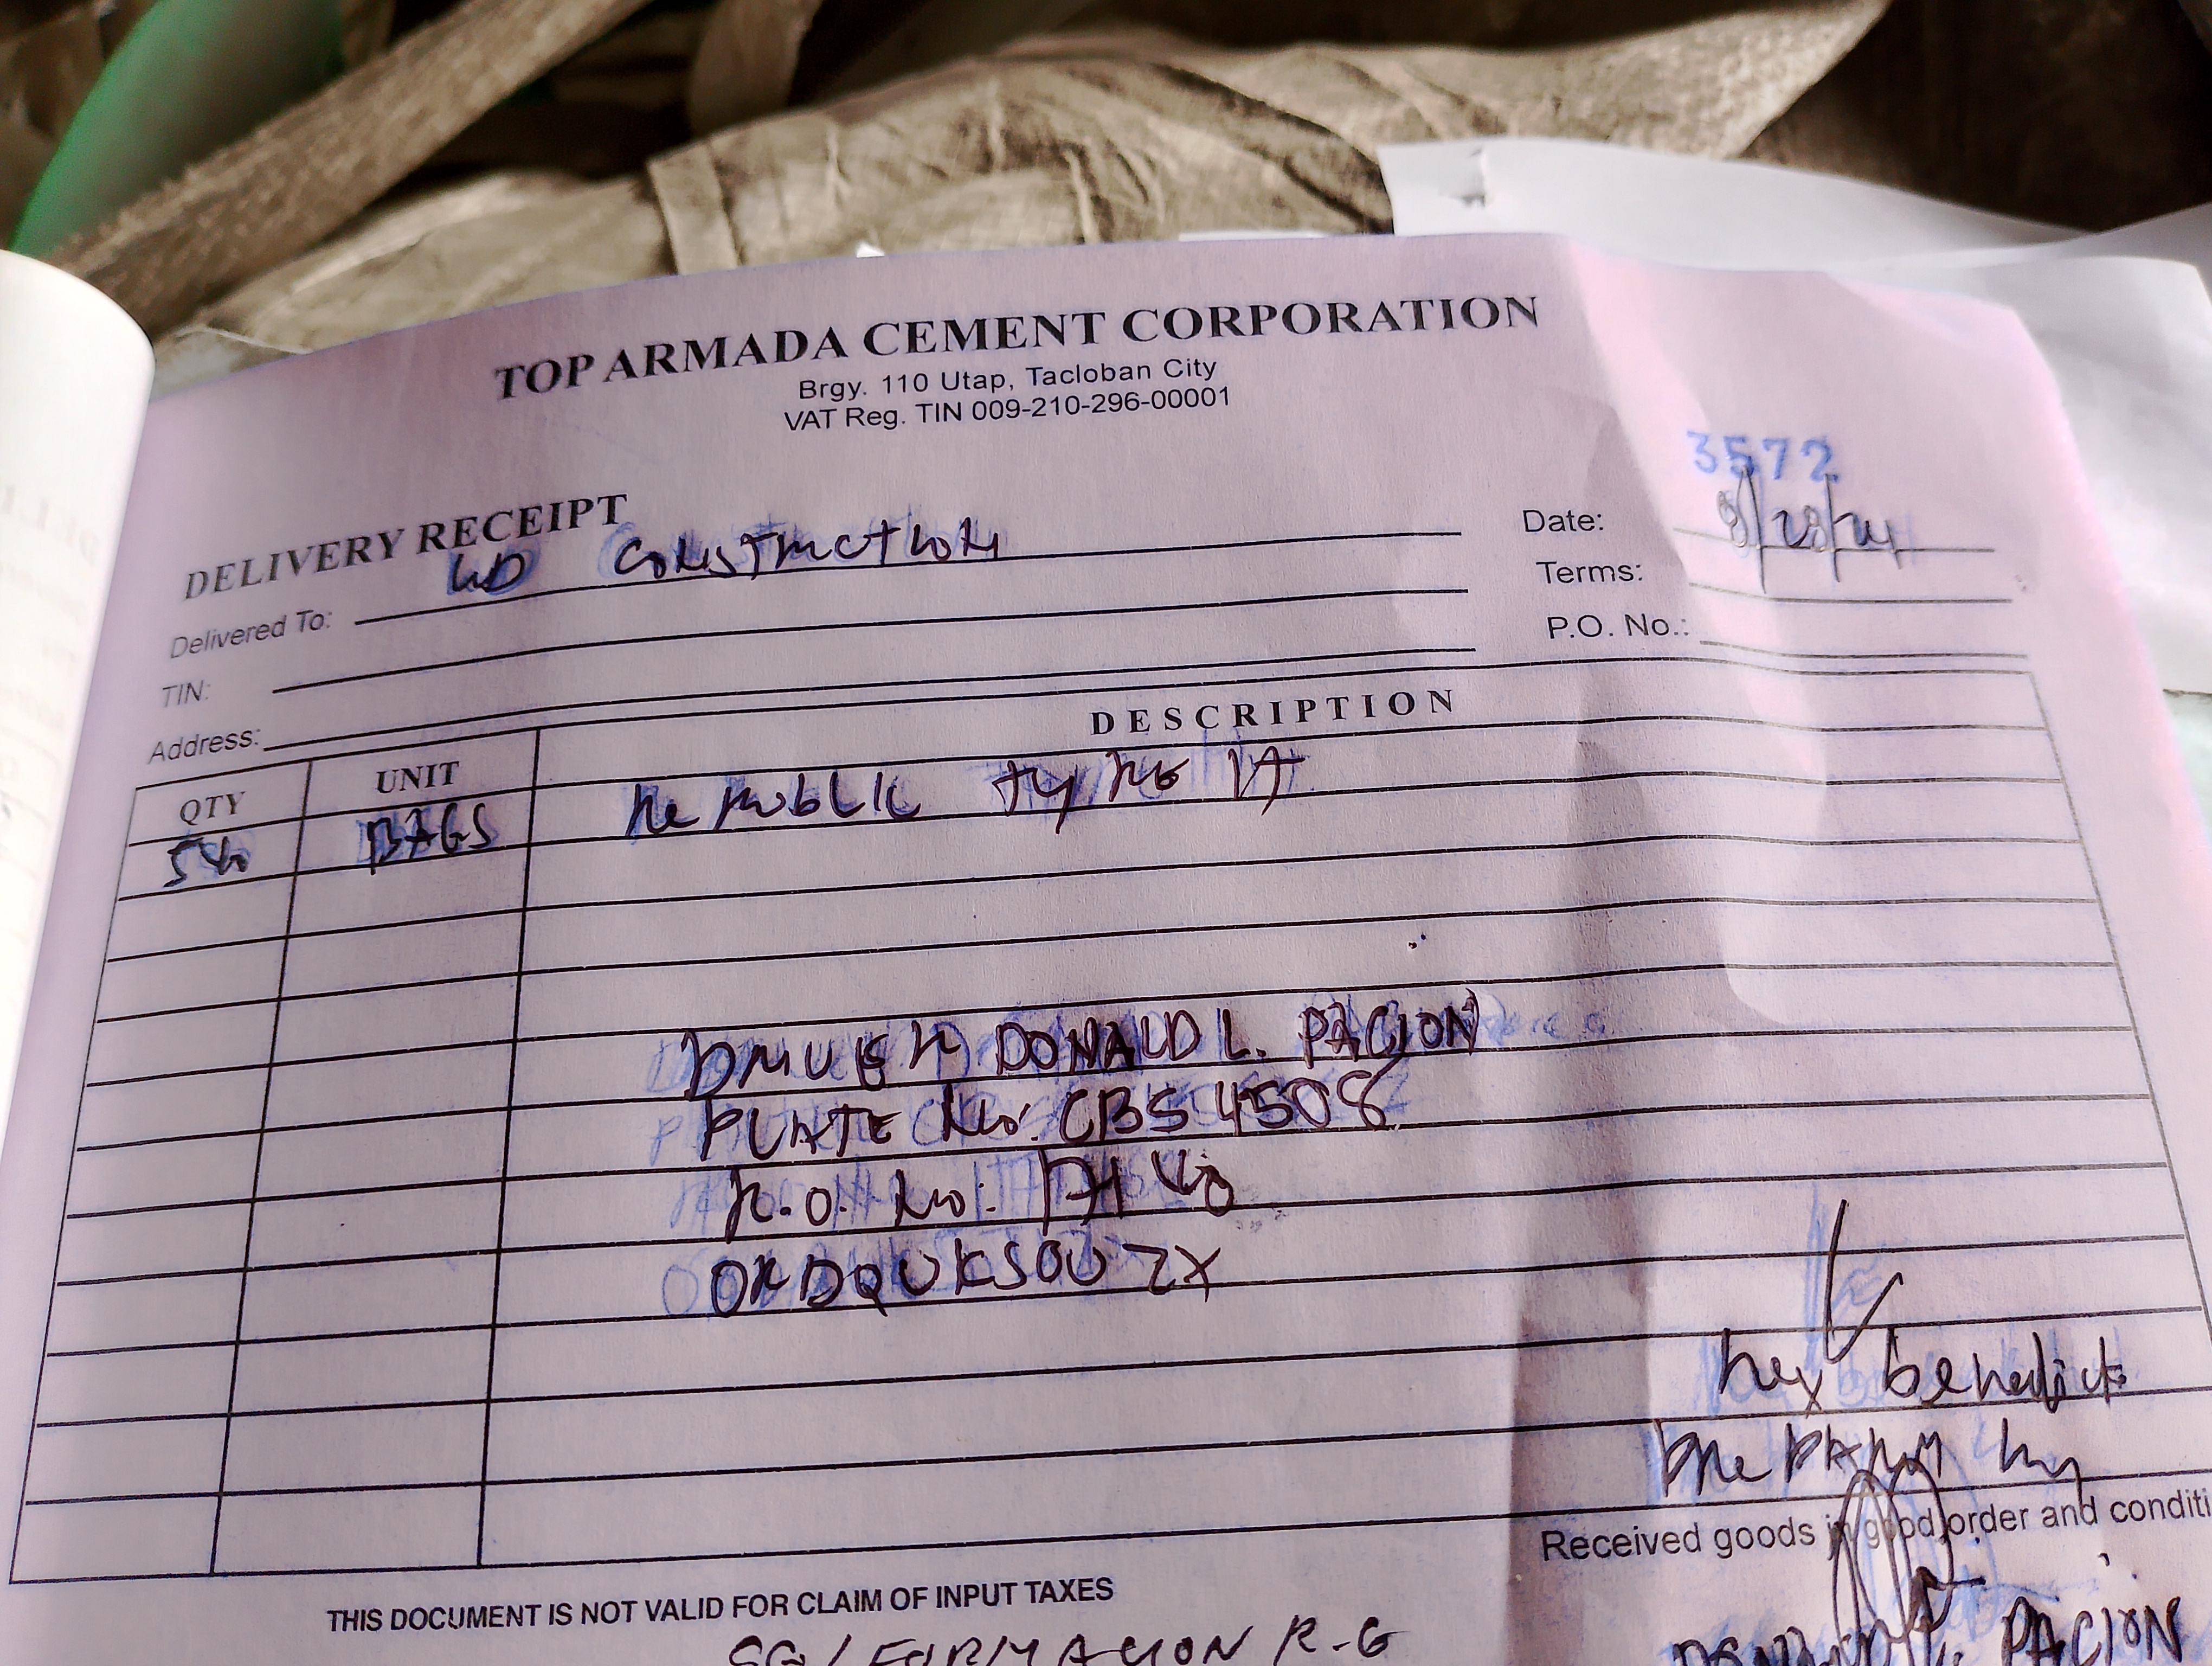 TOP ARMADA CEMENT CORPORATION
Brgy. 110 Utap, Tacloban City
VAT Reg. TIN 009-210-296-00001
3572
DELIVERY RECEIPT
Date:
Delivered To: CONSTRUCTION
Terms:
TIN:
P.O. No.:
Address:
QTY UNIT DESCRIPTION
540 BAGS REPUBLIC TYPE 1T
DRIVER DONALD L. PACION
PLATE No: CBS 4508
P.O. No:
Rex benedicto
PREPARED By
Received goods in good order and conditi
THIS DOCUMENT IS NOT VALID FOR CLAIM OF INPUT TAXES
SG/FORMACION R-G
PACION